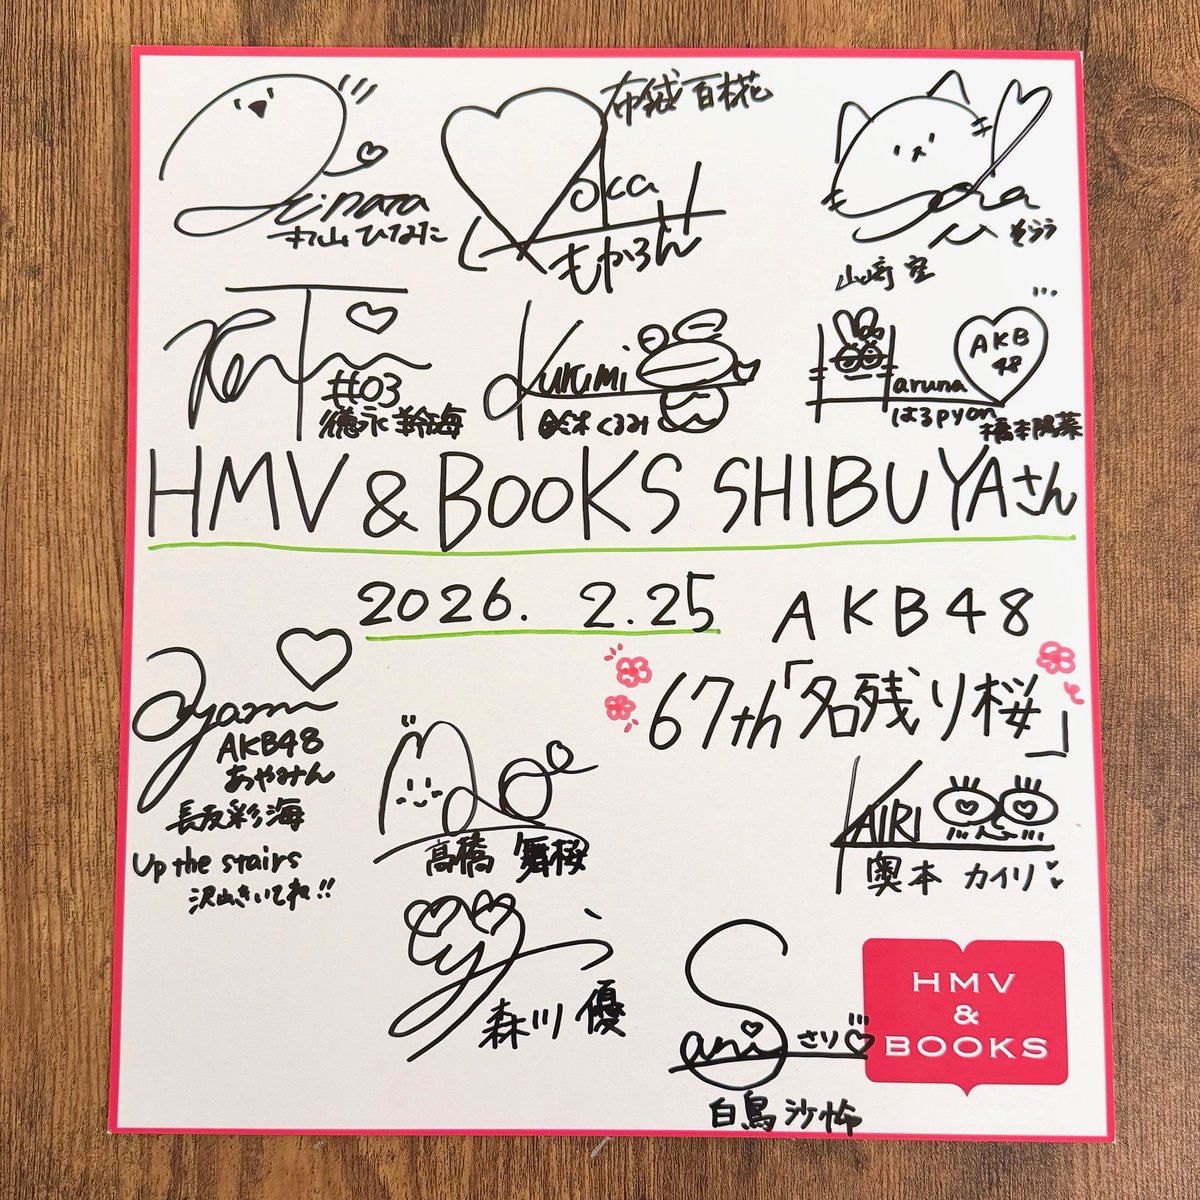 Hinata
丸山ひなた
布袋百椛
Moka
もかろん
Sora
そらら
山﨑空
#03
德永羚海
Kurumi
鈴木くるみ
Haruna
はるpyon
AKB
48
橋本陽菜
HMV & BOOKS SHIBUYAさん
2026. 2.25
AKB48
67th「名残り桜」
Ayami
AKB48
あやみん
長友彩海
Up the stairs
沢山きいてね!!
高橋 舞桜
KAIRI
恋
奥本 カイリ
森川 優
Sari
さり
白鳥沙怜
HMV
&
BOOKS